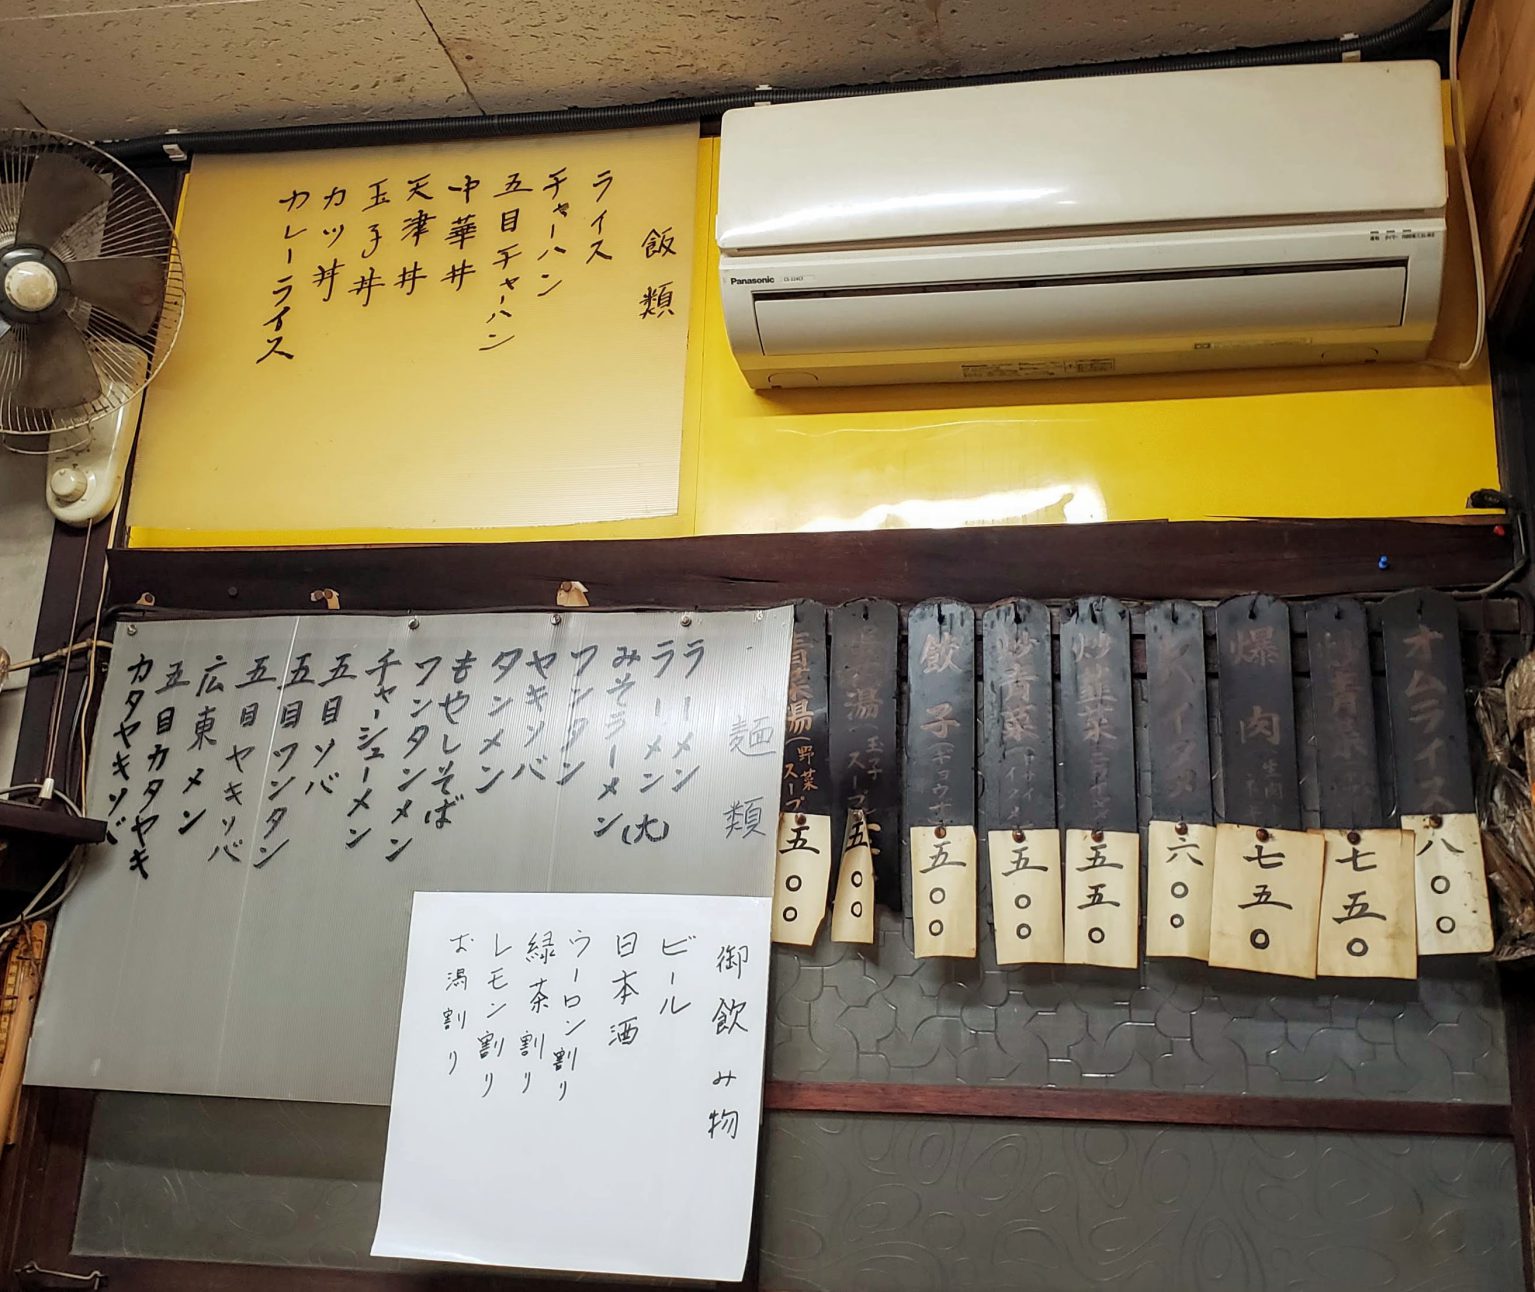 飯類
ライス
チャーハン
五目チャーハン
中華丼
天津丼
玉子丼
カツ丼
カレーライス
Panasonic
麺類
ラーメン
ラーメン(大)
みそラーメン
ワンタン
ヤキソバ
タンメン
もやしそば
ワンタンメン
チャーシューメン
五目ソバ
五目ワンタン
五目ヤキソバ
広東メン
五目カタヤキ
カタヤキソバ
御飲み物
ビール
日本酒
ウーロン割り
緑茶割り
レモン割り
お湯割り
オムライス
八〇〇
七五〇
爆肉
七五〇
六〇〇
炒韮菜
五五〇
炒青菜
五〇〇
餃子(ギョウザ
五〇〇
湯 玉子スープ
五〇〇
青菜湯(野菜スープ
五〇〇